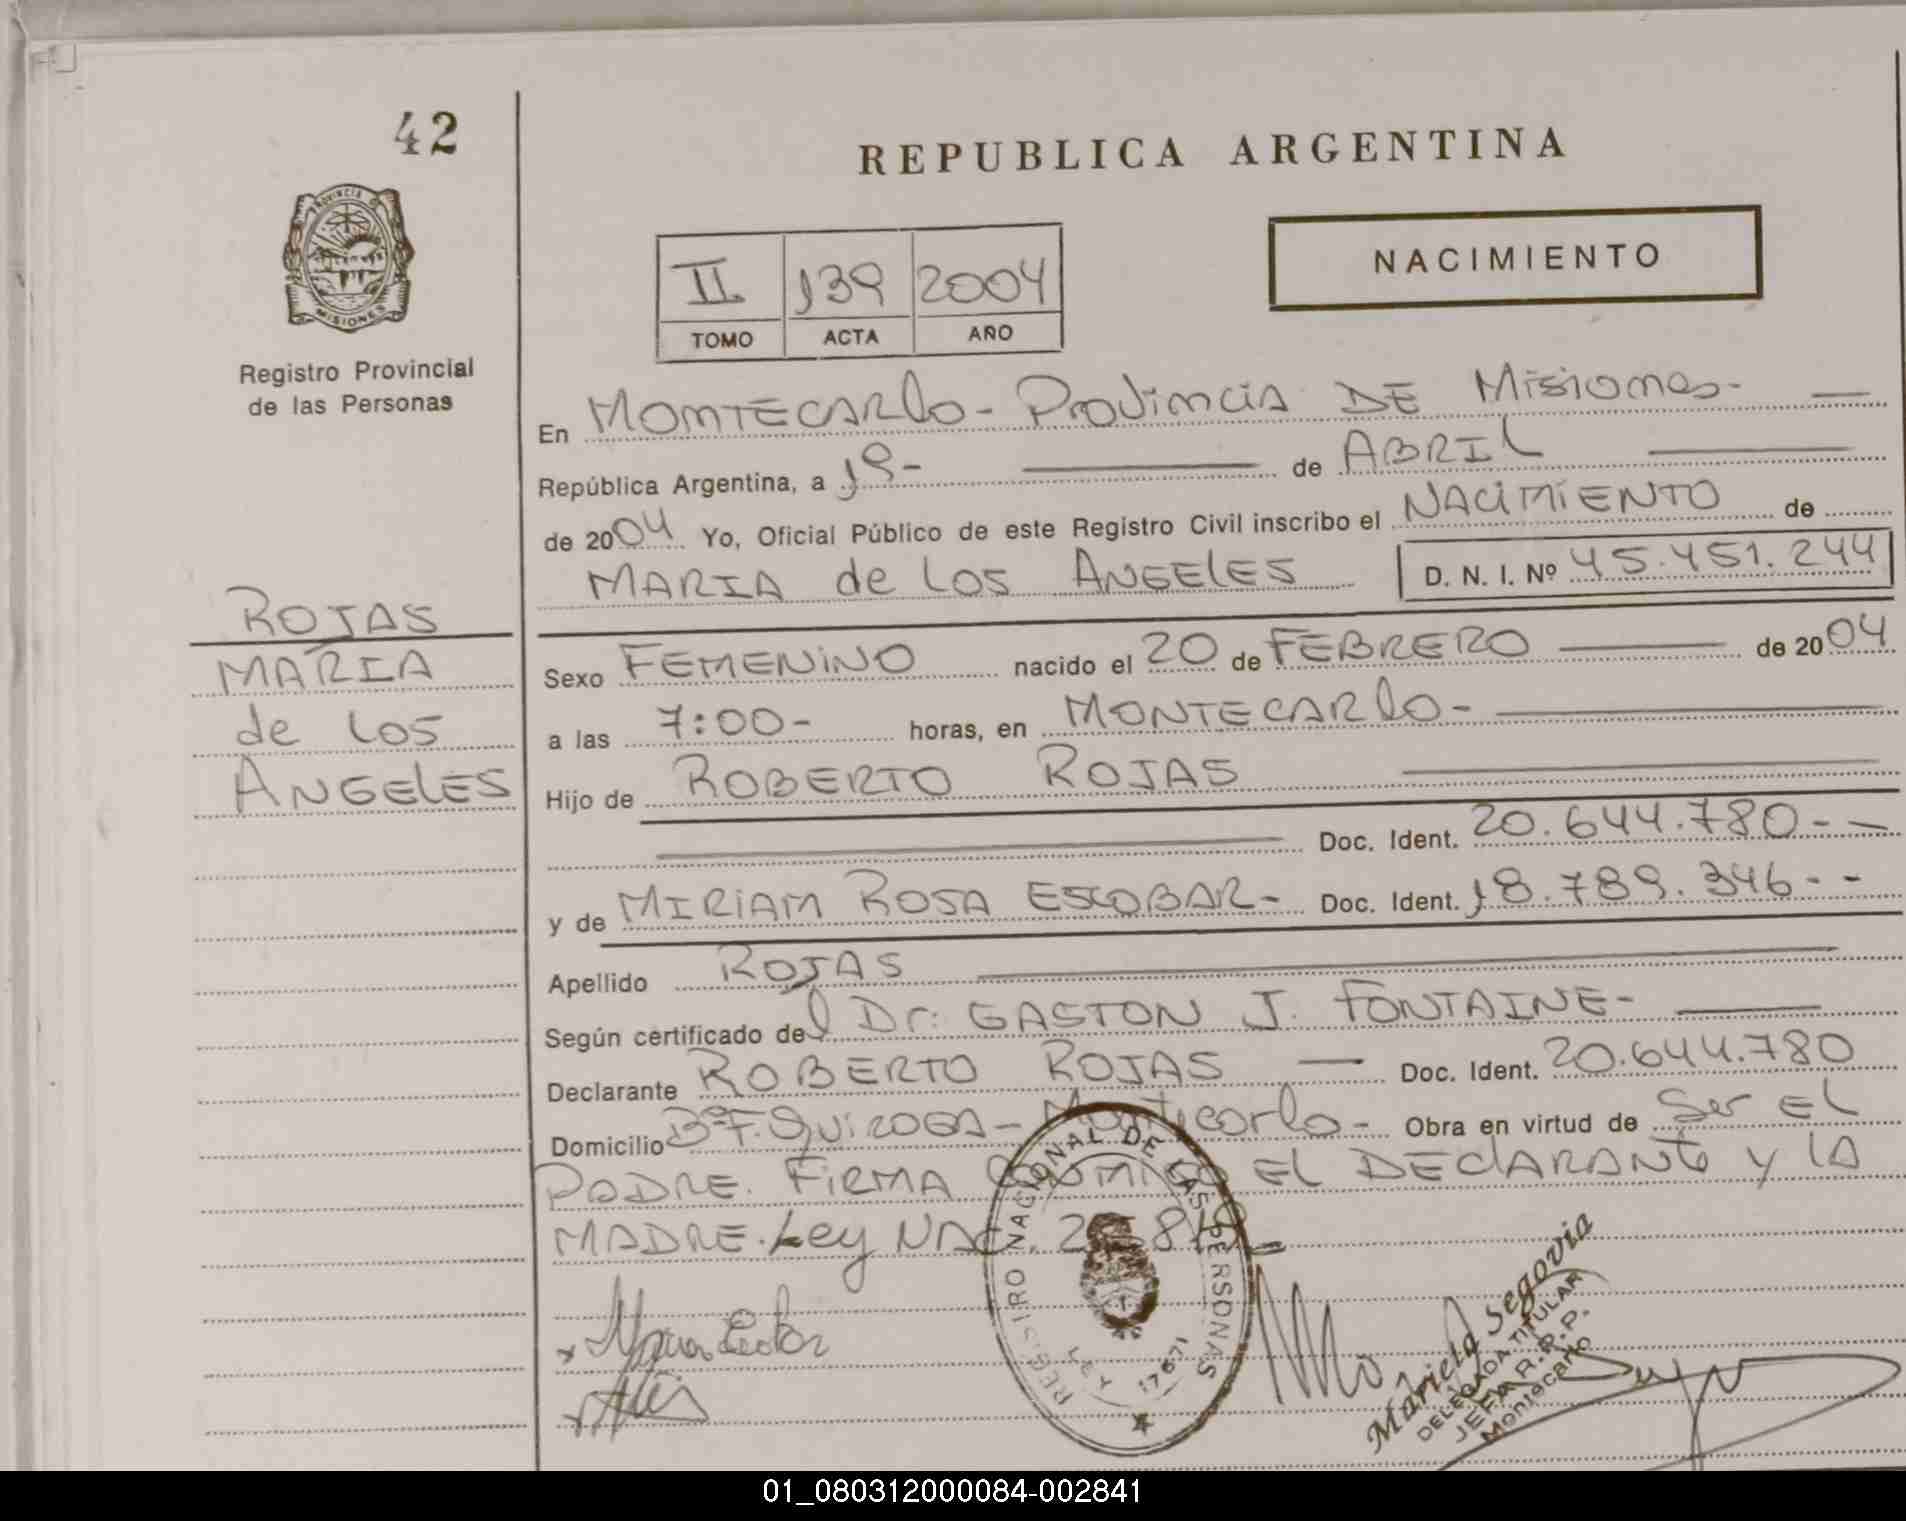 42
REPUBLICA ARGENTINA
PROVINCIA DE
MISIONES
Registro Provincial
de las Personas
II 139 2004
TOMO ACTA AÑO
NACIMIENTO
En MONTECARLO - Provincia DE Misiones -
República Argentina, a 19 - de ABRIL
de 2004 Yo, Oficial Público de este Registro Civil inscribo el NACIMIENTO de
MARIA de los ANGELES D. N. I. Nº 45.451.244
ROJAS
MARIA
de los
ANGELES
Sexo FEMENINO nacido el 20 de FEBRERO de 2004
a las 7:00 - horas, en MONTECARLO -
Hijo de ROBERTO ROJAS
Doc. Ident. 20.644.780 - -
y de MIRIAM ROSA ESCOBAR - Doc. Ident. 18.789.346 - -
Apellido ROJAS
Según certificado del Dr: GASTON J. FONTAINE -
Declarante ROBERTO ROJAS Doc. Ident. 20.644.780
Domicilio Bº F. Quiroga - Montecarlo - Obra en virtud de Ser EL
PADRE. FIRMA CONMIGO EL DECLARANTE y LA
MADRE. Ley NAC.
REGISTRO NACIONAL DE LAS PERSONAS
LEY 17671
Mariela Segovia
DELEGADA TITULAR
JEFA R.P.P.
Montecarlo
01_080312000084-002841